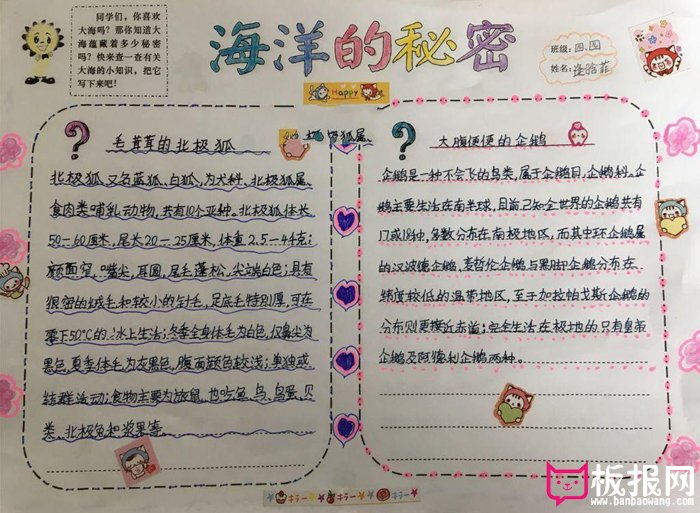 同学们，你喜欢
大海吗？那你知道大
海蕴藏着多少秘密
吗？快来查一查有关
大海的小知识，把它
写下来吧！
海洋的秘密
班级：四.四
姓名：
Happy
毛茸茸的北极狐
北极狐，又名蓝狐、白狐，为犬科、北极狐属、
食肉类哺乳动物，共有10个亚种。北极狐体长
50-60厘米，尾长20-25厘米，体重2.5-4千克；
颜面窄，嘴尖，耳圆，尾毛蓬松，尖端白色；具有
很密的绒毛和较小的针毛，足底毛特别厚，可在
零下50℃的冰上生活；冬季全身体毛为白色，仅鼻尖为
黑色，夏季体毛为灰黑色，腹面颜色较浅；单独或
结群活动；食物主要为旅鼠，也吃鱼、鸟、鸟蛋、贝
类、北极兔和浆果等。
大腹便便的企鹅
企鹅是一种不会飞的鸟类，属于企鹅目，企鹅科。企
鹅主要生活在南半球，目前已知全世界的企鹅共有
17或18种，多数分布在南极地区，而其中环企鹅属
的汉波德企鹅，麦哲伦企鹅与黑脚企鹅分布在
纬度较低的温带地区，至于加拉帕戈斯企鹅的
分布则更接近赤道；完全生活在极地的只有皇帝
企鹅及阿德利企鹅两种。
板报网
www.banbaowang.com